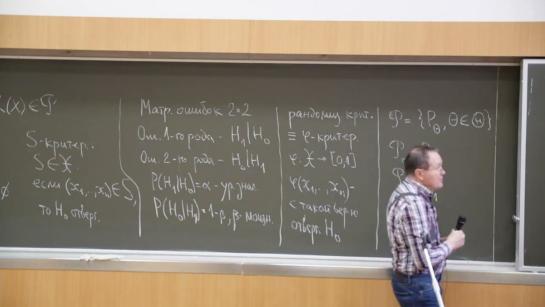 (X) ∈ 𝒫
S-критер.
S ⊂ 𝔛
если (x₁,.., xₙ) ∈ S,
то H₀ отверг.
Матр. ошибок 2×2
Ош. 1-го рода - H₁|H₀
Ош. 2-го рода - H₀|H₁
P(H₁|H₀)=α - ур. знач.
P(H₀|H₁)=1-β, β - мощн.
рандомиз. крит.
≡ φ-критер.
φ: 𝔛 → [0,1]
φ(x₁,.., xₙ) -
с такой вер-ю
отверг. H₀
𝒫 = {P_θ, θ ∈ Θ}